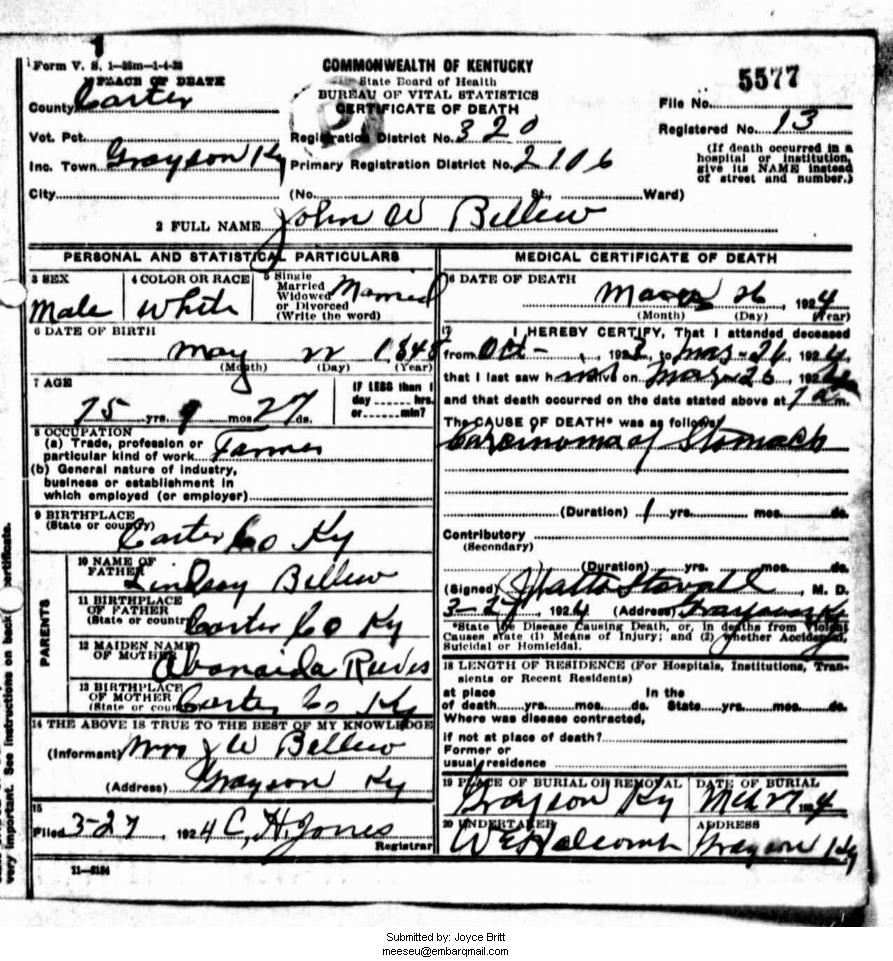 Form V. S. 1-25m-1-4-23
COMMONWEALTH OF KENTUCKY
State Board of Health
BUREAU OF VITAL STATISTICS
CERTIFICATE OF DEATH
5577
File No.
Registered No. 13
(If death occurred in a hospital or institution, give its NAME instead of street and number.)
PLACE OF DEATH
County Carter
Vot. Pct.
Registration District No. 320
Inc. Town Grayson Ky
Primary Registration District No. 2106
City (No. St., Ward)
2 FULL NAME John W Bellew
PERSONAL AND STATISTICAL PARTICULARS
3 SEX
Male
4 COLOR OR RACE
White
5 Single
Married
Widowed
or Divorced
(Write the word)
Married
6 DATE OF BIRTH
May 22 1848
(Month) (Day) (Year)
7 AGE
75 yrs. 9 mos. 27 ds.
IF LESS than 1
day hrs.
or min?
8 OCCUPATION
(a) Trade, profession or
particular kind of work Farmer
(b) General nature of industry,
business or establishment in
which employed (or employer)
9 BIRTHPLACE
(State or county)
Carter Co Ky
PARENTS
10 NAME OF
FATHER Lindsay Bellew
11 BIRTHPLACE
OF FATHER
(State or country) Carter Co Ky
12 MAIDEN NAME
OF MOTHER Reeves
13 BIRTHPLACE
OF MOTHER
(State or country) Carter Co Ky
14 THE ABOVE IS TRUE TO THE BEST OF MY KNOWLEDGE
(Informant) Mrs J W Bellew
(Address) Grayson Ky
15
Filed 3-27, 1924 C. H. Jones
Registrar
11-3184
MEDICAL CERTIFICATE OF DEATH
16 DATE OF DEATH
March 26, 1924
(Month) (Day) (Year)
17 I HEREBY CERTIFY, That I attended deceased
from Oct - , 1923, to Mar - 26, 1924,
that I last saw him alive on Mar - 26, 1924
and that death occurred on the date stated above at 7 a m.
The CAUSE OF DEATH* was as follows:
Carcinoma of Stomach
(Duration) 1 yrs. mos. ds.
Contributory
(Secondary)
(Duration) yrs. mos. ds.
(Signed) Stovall, M. D.
3-27, 1924 (Address) Grayson Ky
*State the Disease Causing Death, or, in deaths from Violent
Causes state (1) Means of Injury; and (2) whether Accidental,
Suicidal or Homicidal.
18 LENGTH OF RESIDENCE (For Hospitals, Institutions, Tran-
sients or Recent Residents)
at place In the
of death yrs. mos. ds. State yrs. mos. ds.
Where was disease contracted,
if not at place of death?
Former or
usual residence
19 PLACE OF BURIAL OR REMOVAL
Grayson Ky
DATE OF BURIAL
Mch 27 1924
20 UNDERTAKER
W E Halcomb
ADDRESS
Grayson Ky
very important. See instructions on back certificate.
Submitted by: Joyce Britt
meeseu@embarqmail.com